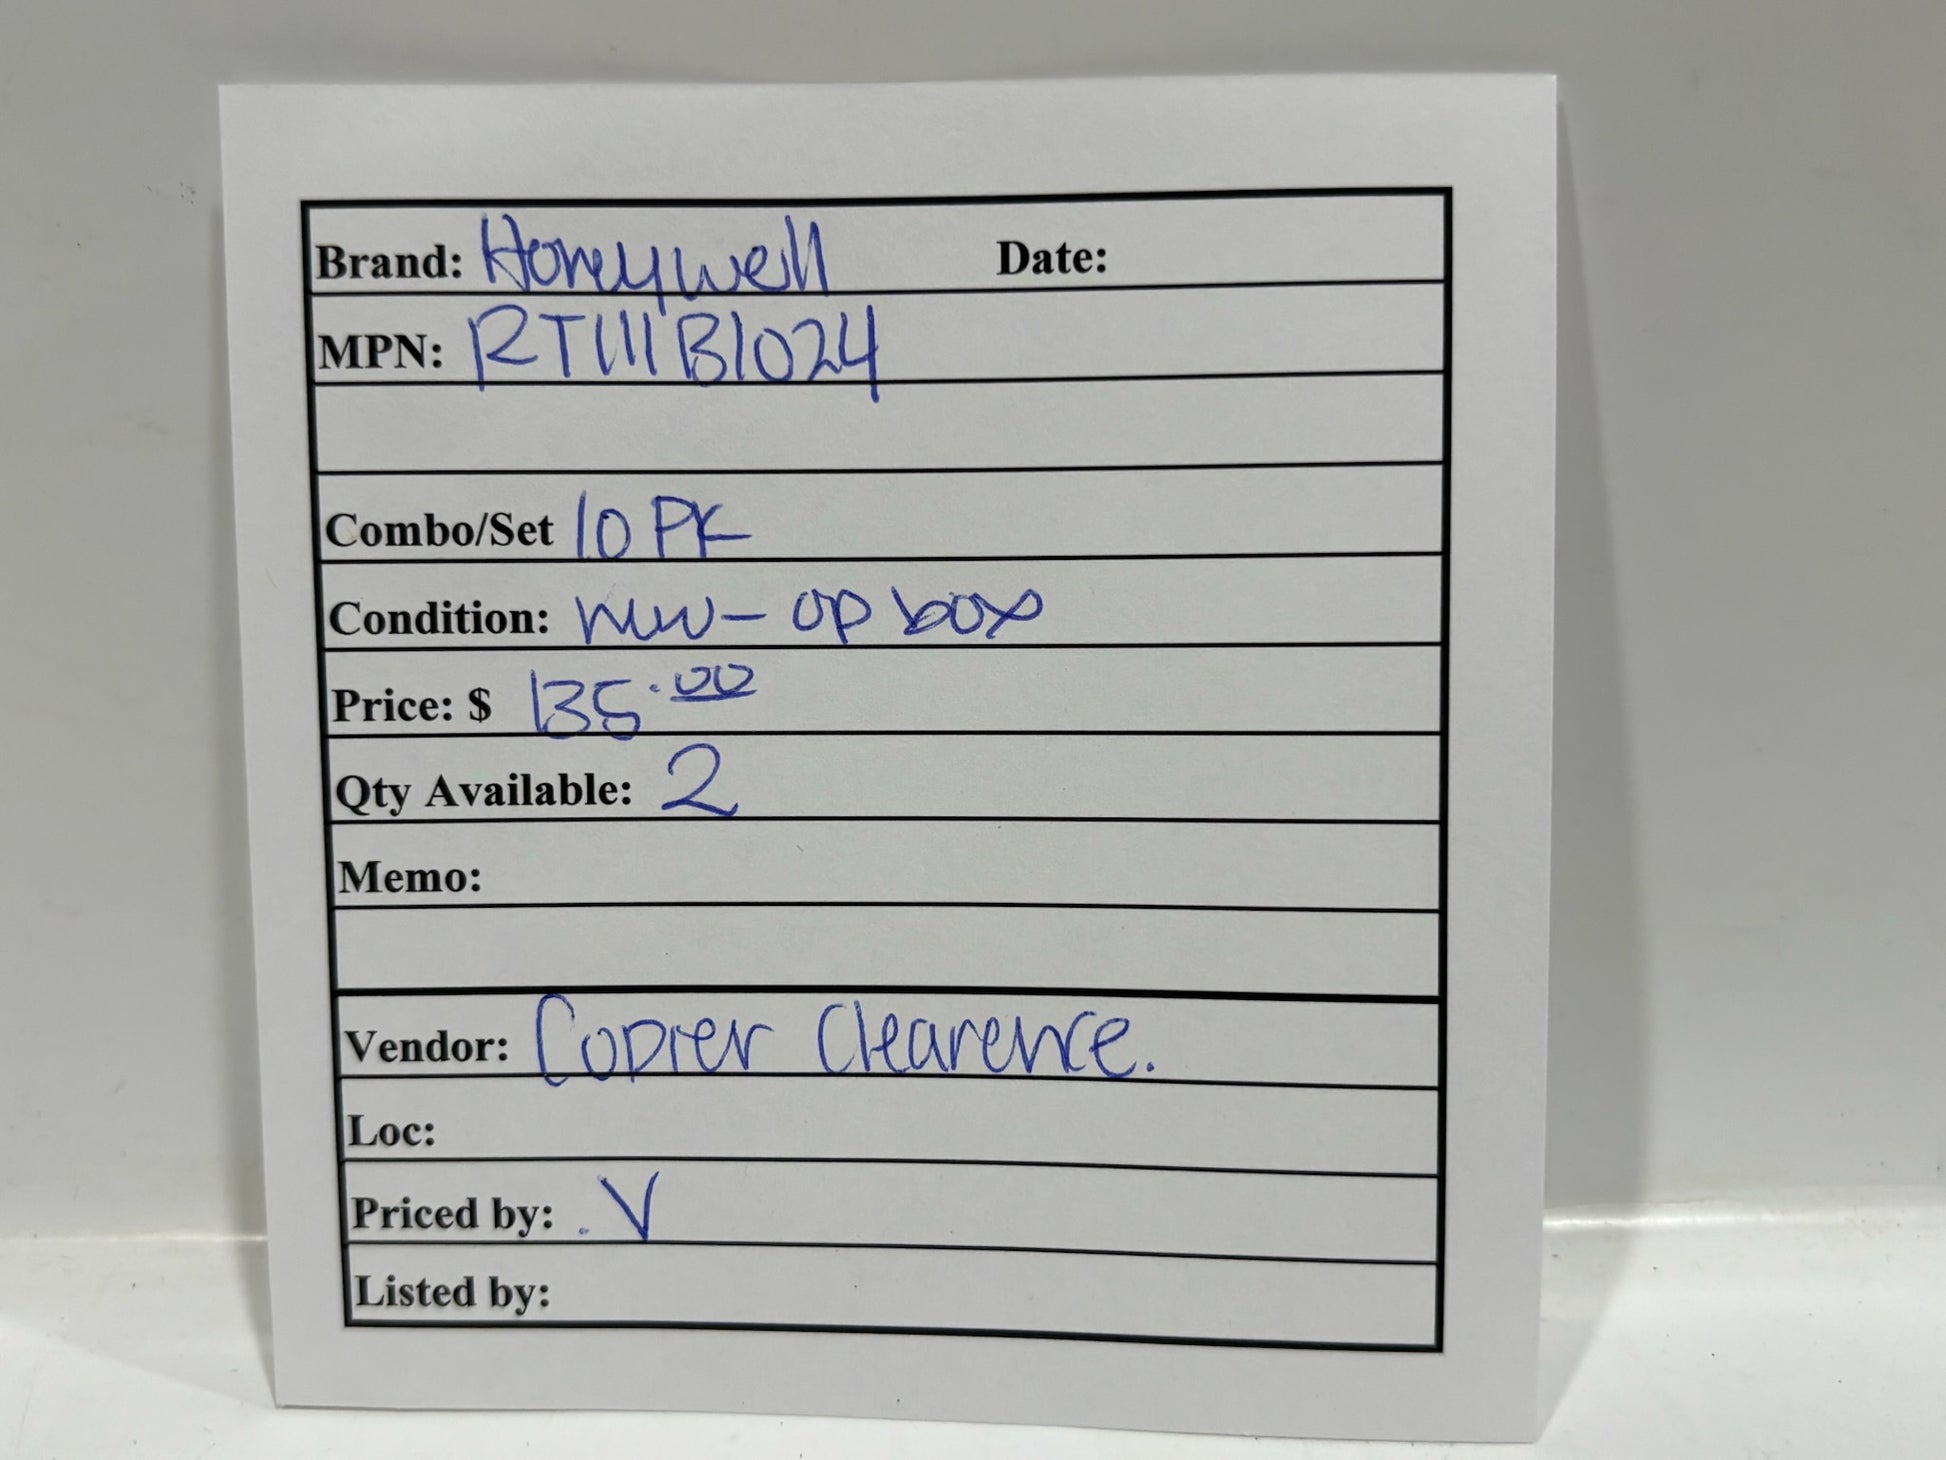 Brand: Honeywell Date:
MPN: RT111B1024
Combo/Set 10 PK
Condition: new - op box
Price: $ 135.00
Qty Available: 2
Memo:
Vendor: Copier Clearence.
Loc:
Priced by: . V
Listed by: